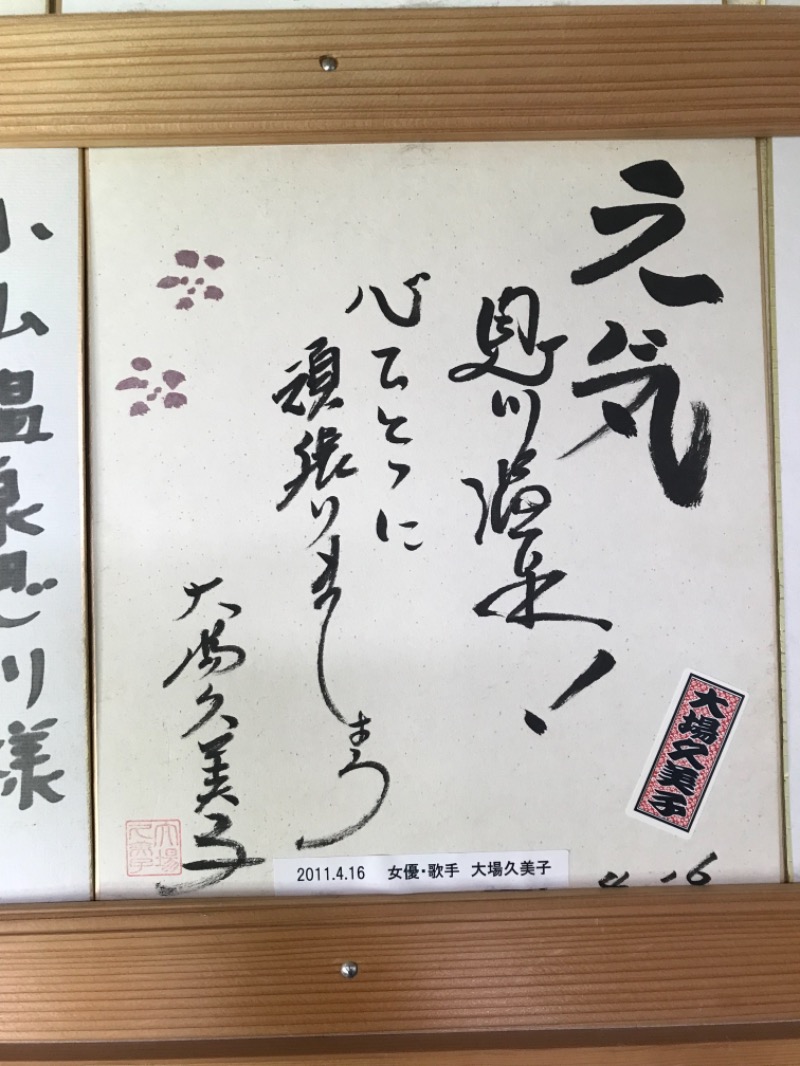 元気
川温泉!
心ひとつに
頑張りましょう
大場久美子
大場久美子
大場久美子
2011.4.16 女優・歌手 大場久美子
4.16